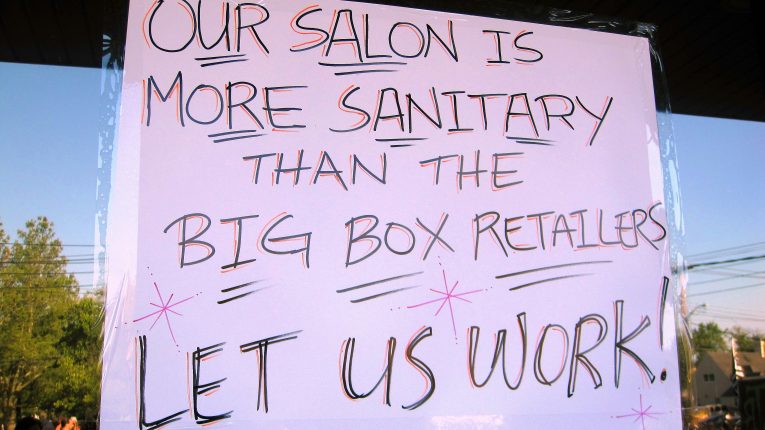 OUR SALON IS
MORE SANITARY
THAN THE
BIG BOX RETAILERS
LET US WORK!